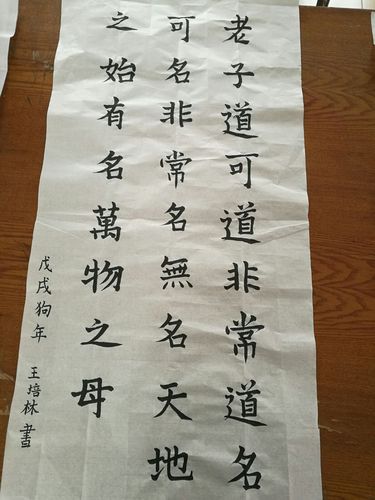 老子道可道非常道名
可名非常名無名天地
之始有名萬物之母
戊戌狗年 王培林書